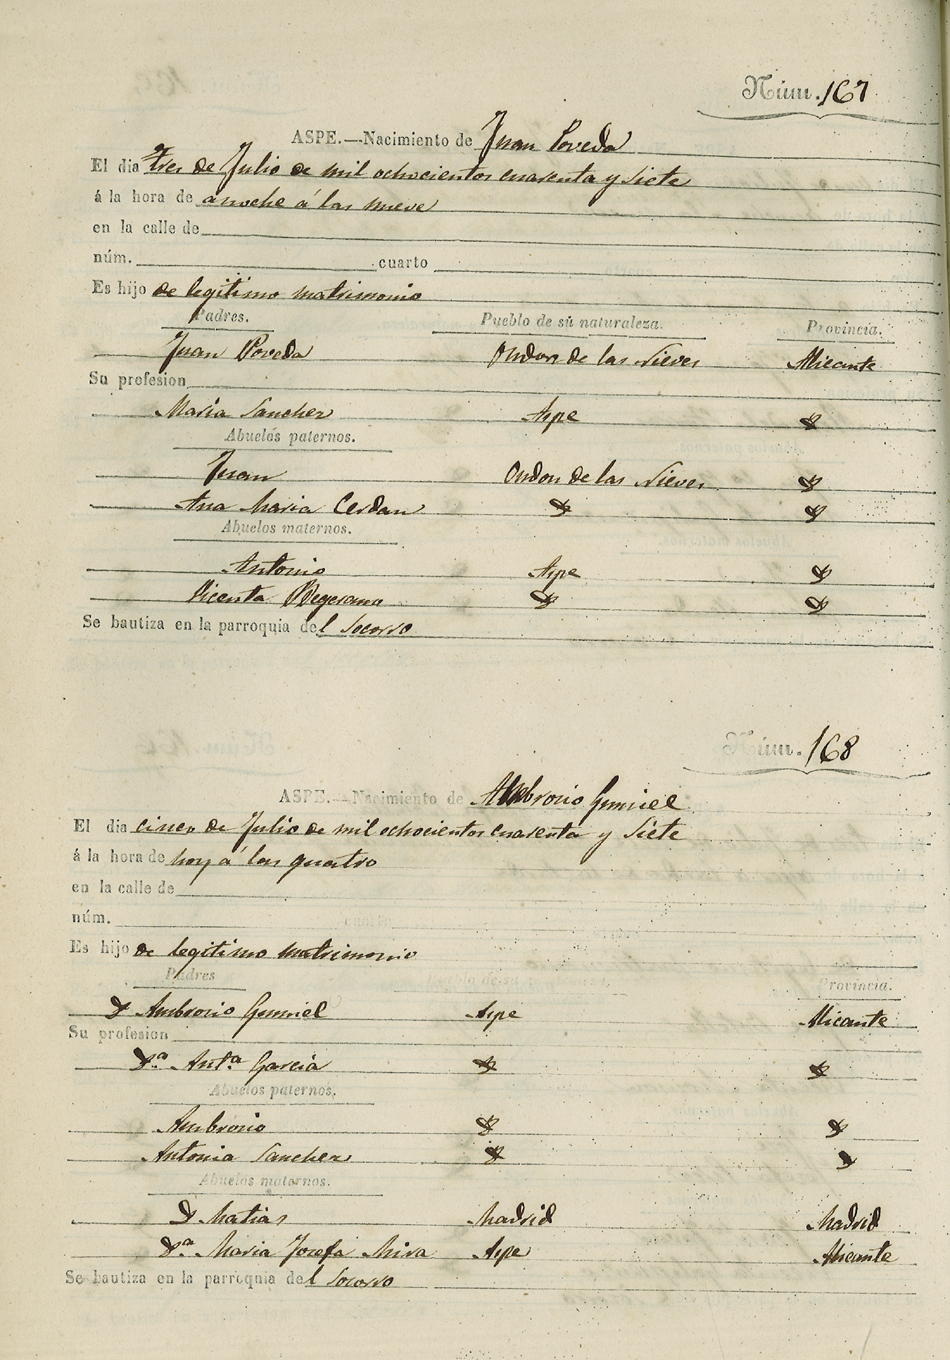 Núm. 167
ASPE.—Nacimiento de Juan Poveda
El dia tres de Julio de mil ochocientos cuarenta y siete
á la hora de anoche á las nueve
en la calle de
núm. cuarto
Es hijo de legitimo matrimonio
Padres. Pueblo de su naturaleza. Provincia.
Juan Poveda Ondon de las Nieves Alicante
Su profesion
Maria Sanchez Aspe
Abuelos paternos.
Juan Ondon de las Nieves
Ana Maria Cerdan
Abuelos maternos.
Antonio Aspe
Vicenta
Se bautiza en la parroquia del Socorro
Núm. 168
ASPE.—Nacimiento de Ambrosio Gumiel
El dia cinco de Julio de mil ochocientos cuarenta y siete
á la hora de hoy á las quatro
en la calle de
núm. cuarto
Es hijo de legitimo matrimonio
Padres Pueblo de su naturaleza. Provincia.
D Ambrosio Gumiel Aspe Alicante
Su profesion
Dª. Antª Garcia
Abuelos paternos.
Ambrosio
Antonia Sanchez
Abuelos maternos.
D Matias Madrid Madrid
Dª Maria Josefa Mira Aspe Alicante
Se bautiza en la parroquia del Socorro